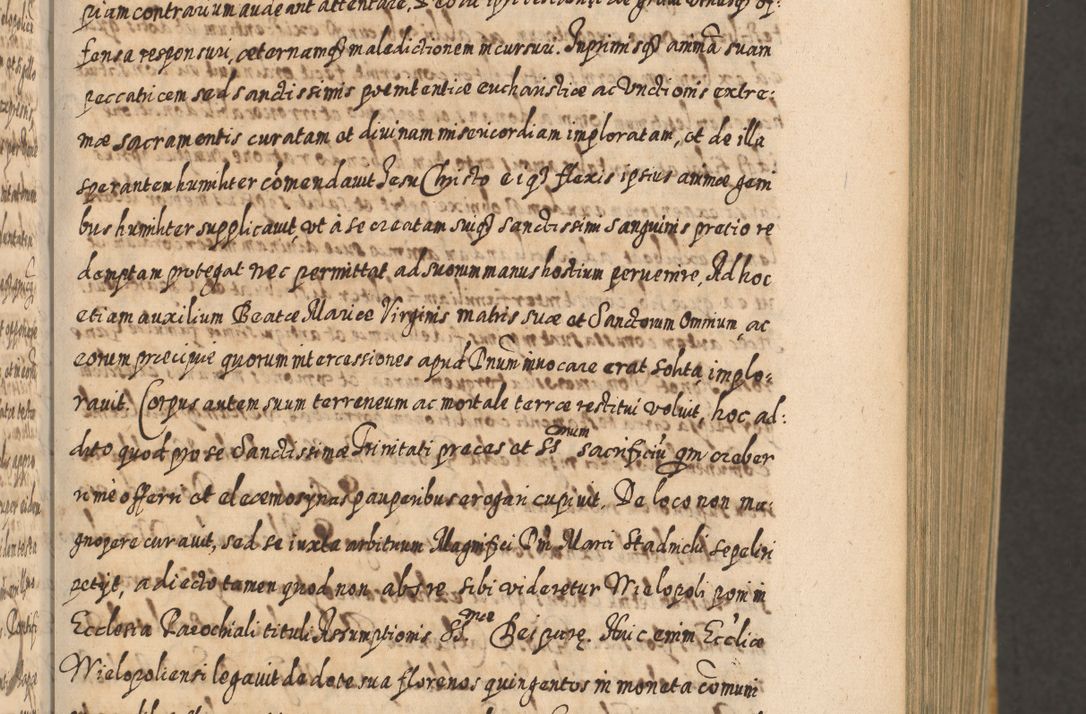 piam contrarium audeant attentare,
fensa responsuri, æternamq̃ maledictionem incursuri. Inprimisq̃ animã suam
peccatricem sed sanctissimis poenitentiæ eucharistiæ ac Unctionis extre:
mæ sacramentis curatam et divinam misericordiam imploratam, et de illa
sperantem humiliter cõmendavit Jesu Christo eiq̃ flexis ipsius animæ geni
bus humiliter supplicavit, vt à se creatam suiq̃ sanctissimi sanguinis pretio re
demptam protegat nec permittat, ad suorum manus hostium pervenire, Ad hoc
etiam auxilium Beatæ Mariæ Virginis matris suæ et Sanctorum Omnium, ac
eorum præcipue quorum intercessiones apud Dnum invocare erat solita, implo:
ravit. Corpus autem suum terreneum ac mortale terræ restitui voluit, hoc ad:
dito quod pro se Sanctissimæ Trinitati preces et SSorum sacrificiũ qm creber
rime offerri et eleemosynas pauperibus erogari cupivit. De loco non ma:
gnopere curavit, sed se iuxta arbitrium Magnifici Dni Marci Stadnicki sepeliri
petyt, adiecto tamen quod non abs re sibi videretur Wielopoli poni in
Ecclesia Parochiali tituli Assumptionis SSmæ Dei paræ. Huic enim Eccliæ
Wielopoliensi legavit de dote sua florenos quingentos in moneta cõmuni